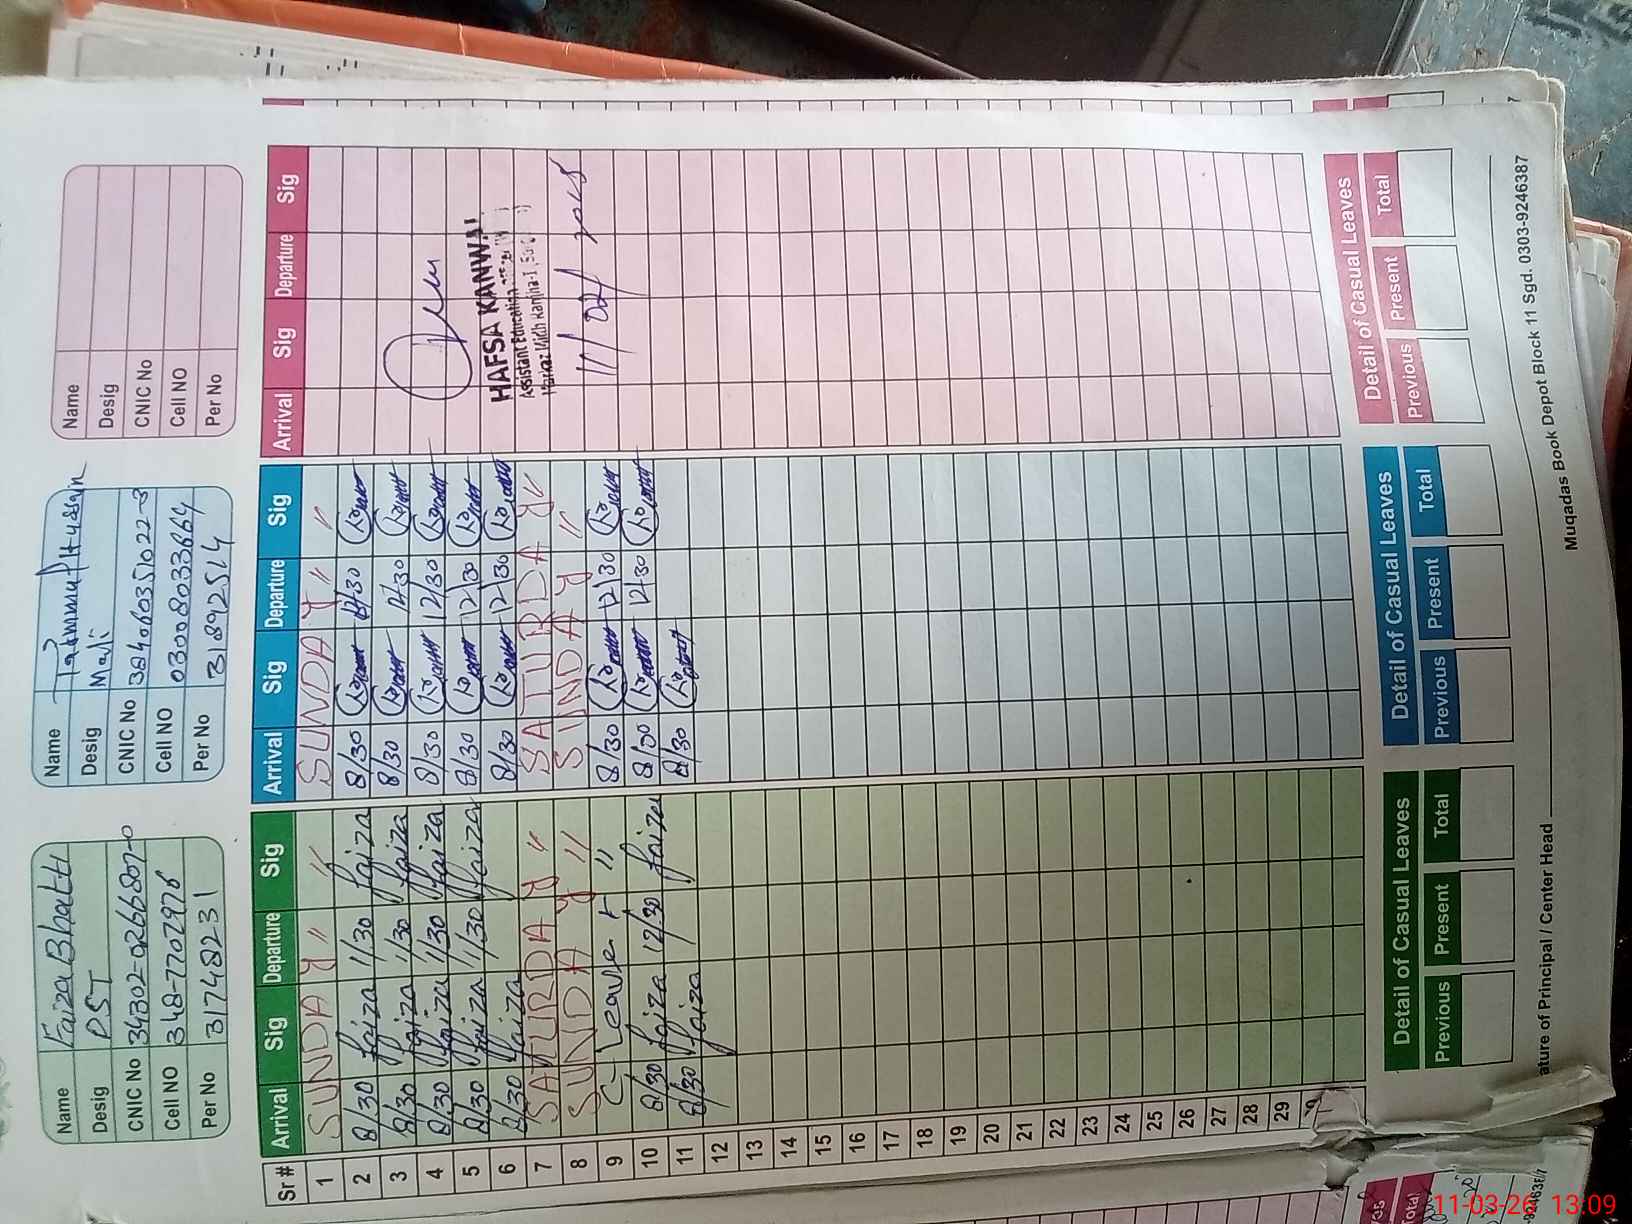 Name Faiza Bhatti
Desig PST
CNIC No 34302-0266807-0
Cell NO 348-7702976
Per No 31748231
Name Tatammul Hussain
Desig Mali
CNIC No 384060351022-3
Cell NO 03008033664
Per No 31892514
Name
Desig
CNIC No
Cell NO
Per No
Sr # Arrival Sig Departure Sig Arrival Sig Departure Sig Arrival Sig Departure Sig
1 SUNDAY " " SUNDAY " "
2 8/30 faiza 11/30 faiza 8/30 12/30
3 8/30 faiza 11/30 faiza 8/30 12/30
4 8/30 faiza 11/30 faiza 8/30 12/30
5 8/30 faiza 11/30 faiza 8/30 12/30
6 8/30 faiza 8/30 12/30
HAFSA KANWAL
Assistant Education
Markaz
7 SATURDAY " SATURDAY "
8 SUNDAY " SUNDAY " 11/02/
9 C/Leave " 8/30 12/30
10 8/30 faiza 12/30 faiza 8/30 12/30
11 8/30 faiza 8/30
12
13
14
15
16
17
18
19
20
21
22
23
24
25
26
27
28
29
Detail of Casual Leaves Detail of Casual Leaves Detail of Casual Leaves
Previous Present Total Previous Present Total Previous Present Total
ature of Principal / Center Head
Muqadas Book Depot Block 11 Sgd. 0303-9246387
11-03-26 13:09